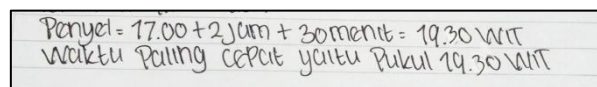 Penyel = 17.00 + 2 jam + 30 menit = 19.30 WIT
Waktu Paling cepat yaitu Pukul 19.30 WIT